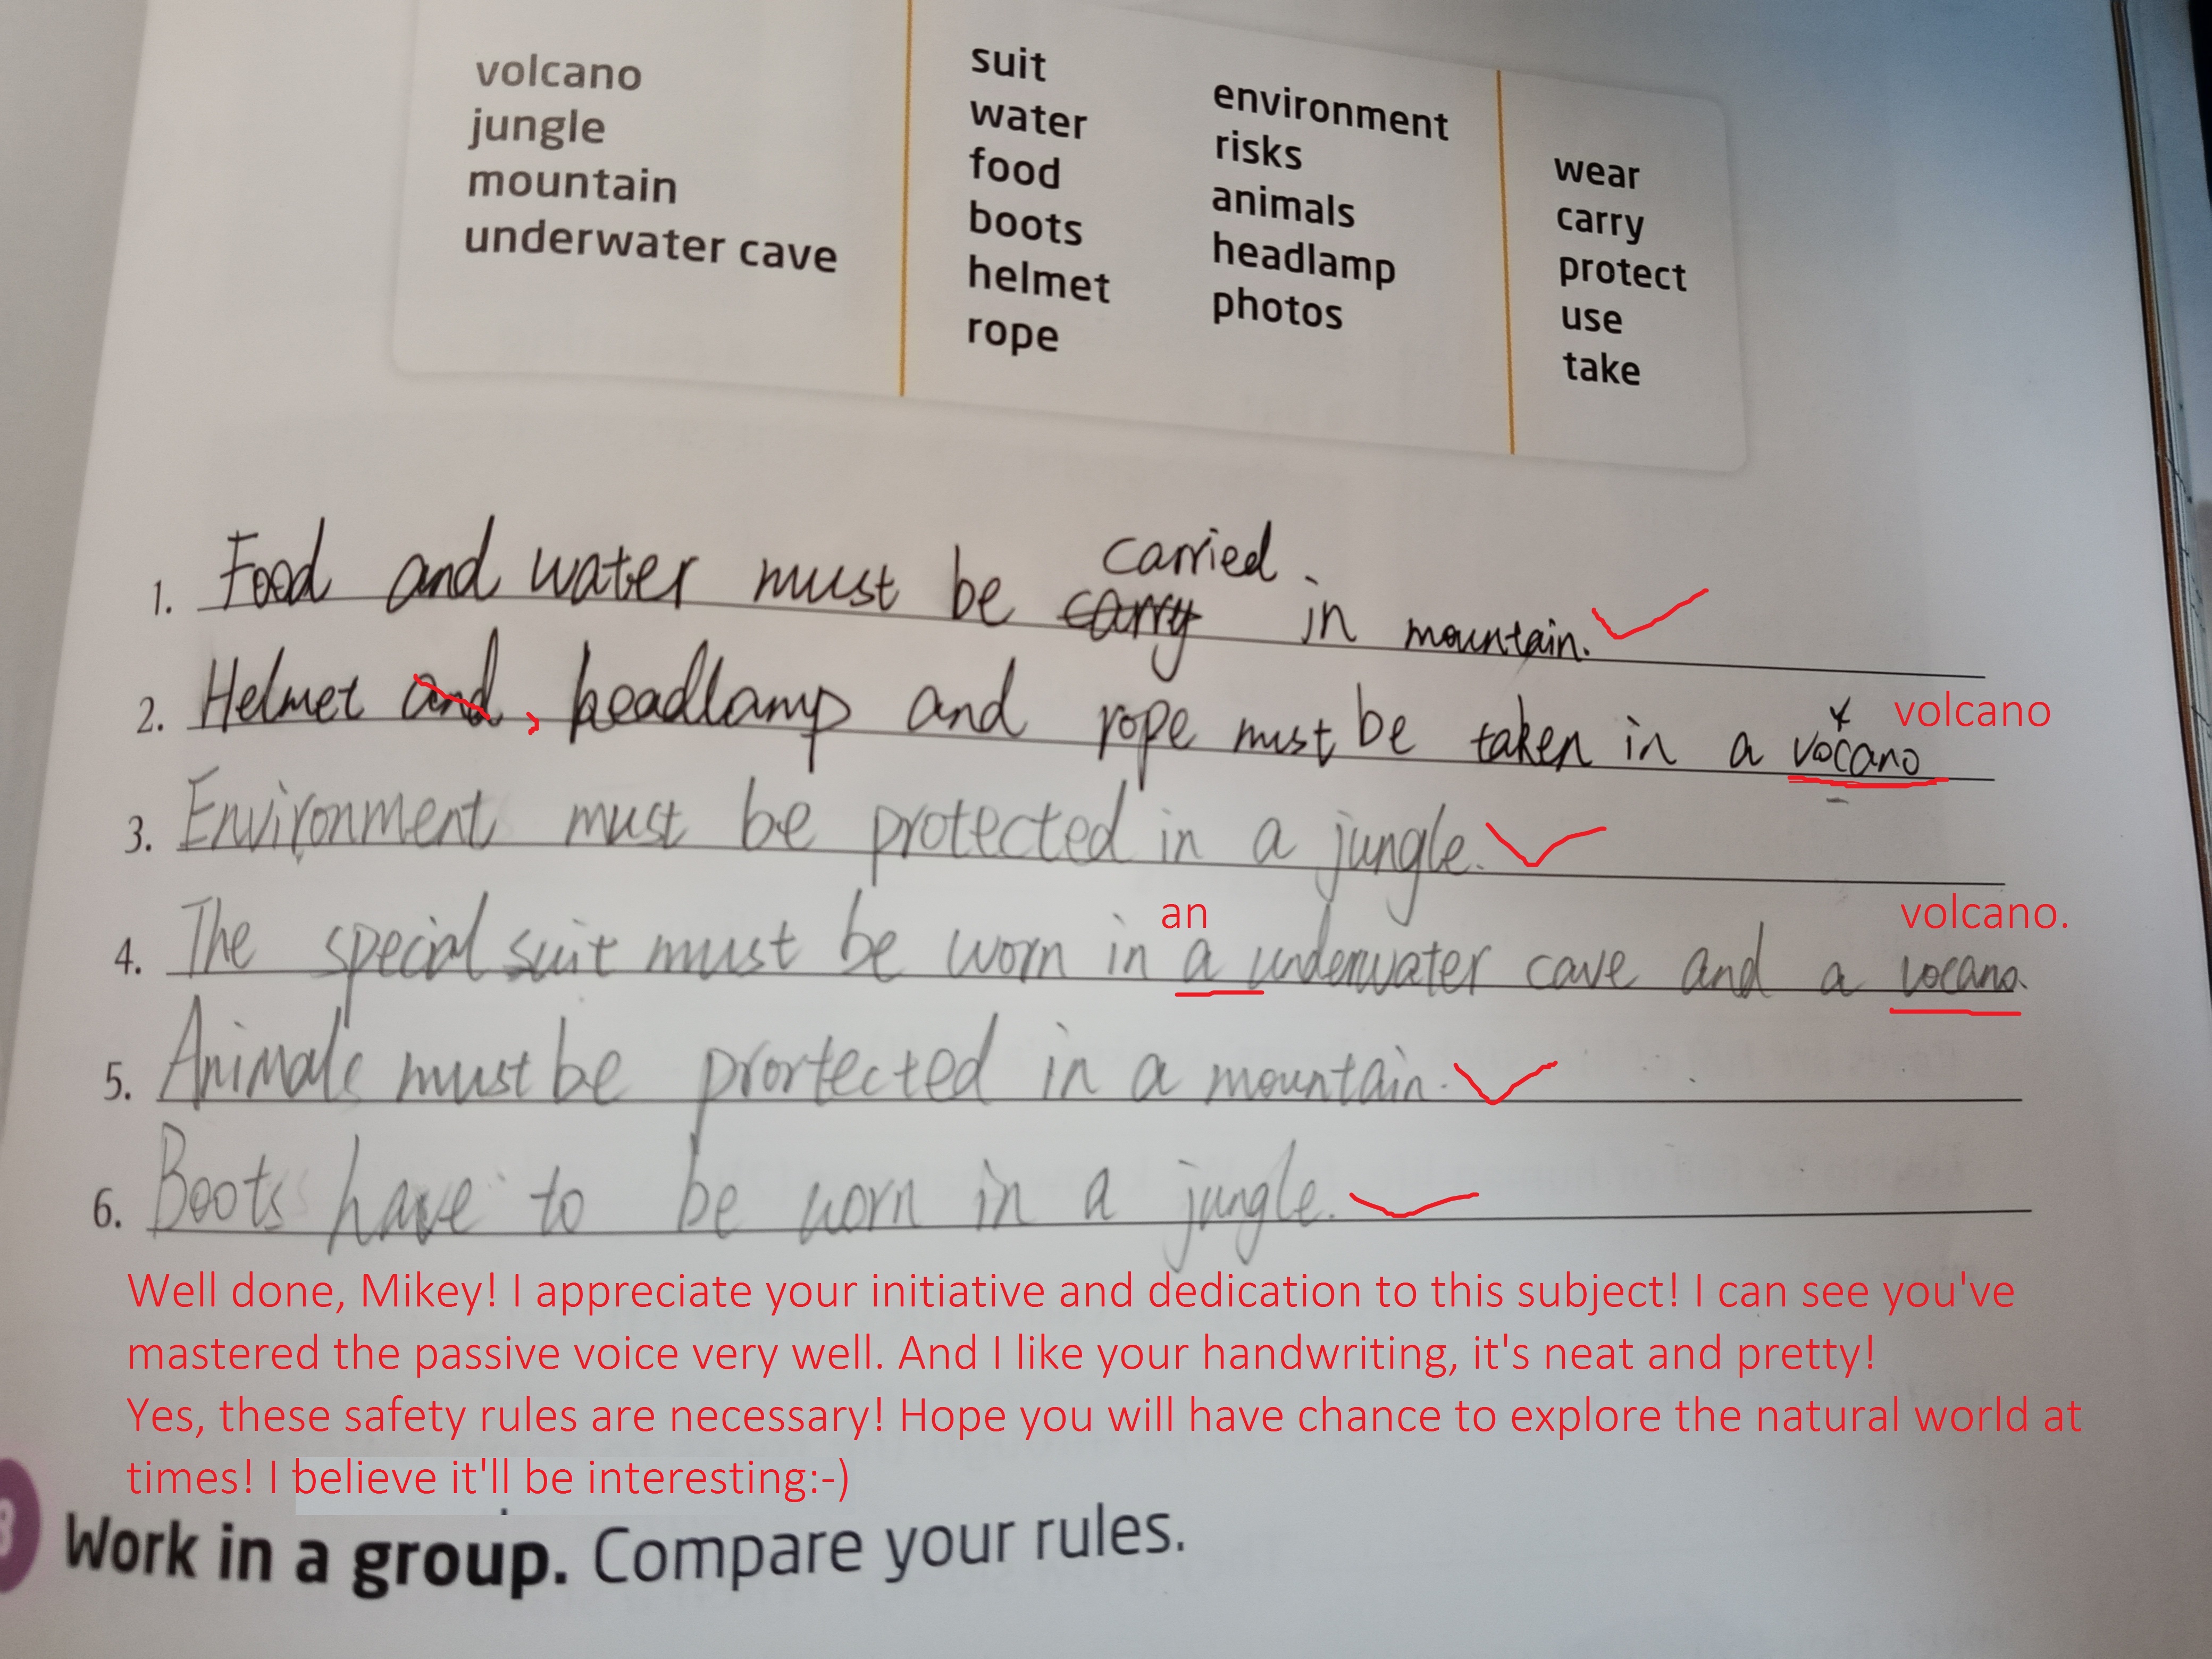 volcano
jungle
mountain
underwater cave
suit
water
food
boots
helmet
rope
environment
risks
animals
headlamp
photos
wear
carry
protect
use
take
carried
1. Food and water must be carry in mountain.
2. Helmet and, headlamp and rope must be taken in a vocano volcano
3. Environment must be protected in a jungle.
an volcano.
4. The special suit must be worn in a underwater cave and a vocano.
5. Animals must be prortected in a mountain.
6. Boots have to be worn in a jungle.
Well done, Mikey! I appreciate your initiative and dedication to this subject! I can see you've
mastered the passive voice very well. And I like your handwriting, it's neat and pretty!
Yes, these safety rules are necessary! Hope you will have chance to explore the natural world at
times! I believe it'll be interesting:-)
Work in a group. Compare your rules.